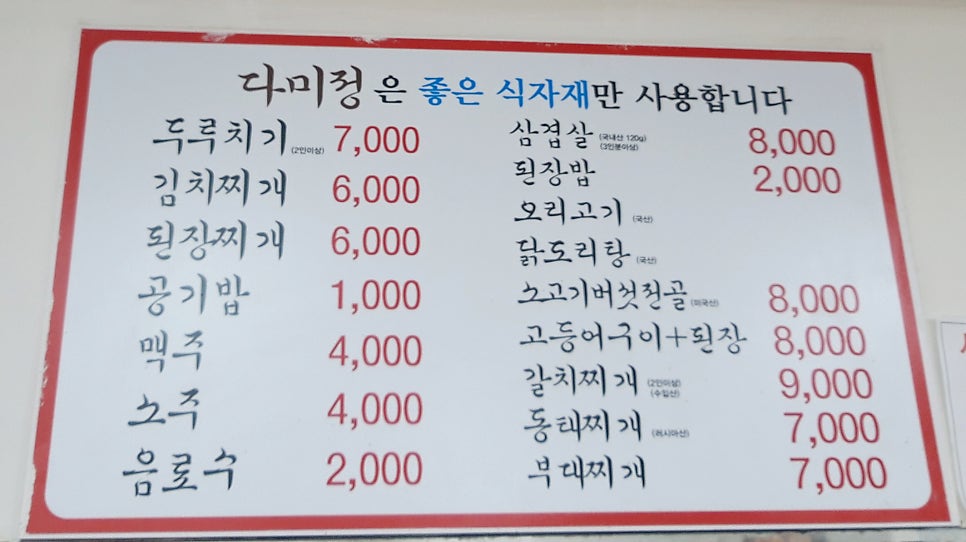 다미정은 좋은 식자재만 사용합니다
두루치기 (2인이상) 7,000
김치찌개 6,000
된장찌개 6,000
공기밥 1,000
맥주 4,000
소주 4,000
음료수 2,000
삼겹살 (국내산 120g) (3인분이상) 8,000
된장밥 2,000
오리고기 (국산)
닭도리탕 (국산)
소고기버섯전골 (미국산) 8,000
고등어구이+된장 8,000
갈치찌개 (2인이상) (수입산) 9,000
동태찌개 (러시아산) 7,000
부대찌개 7,000